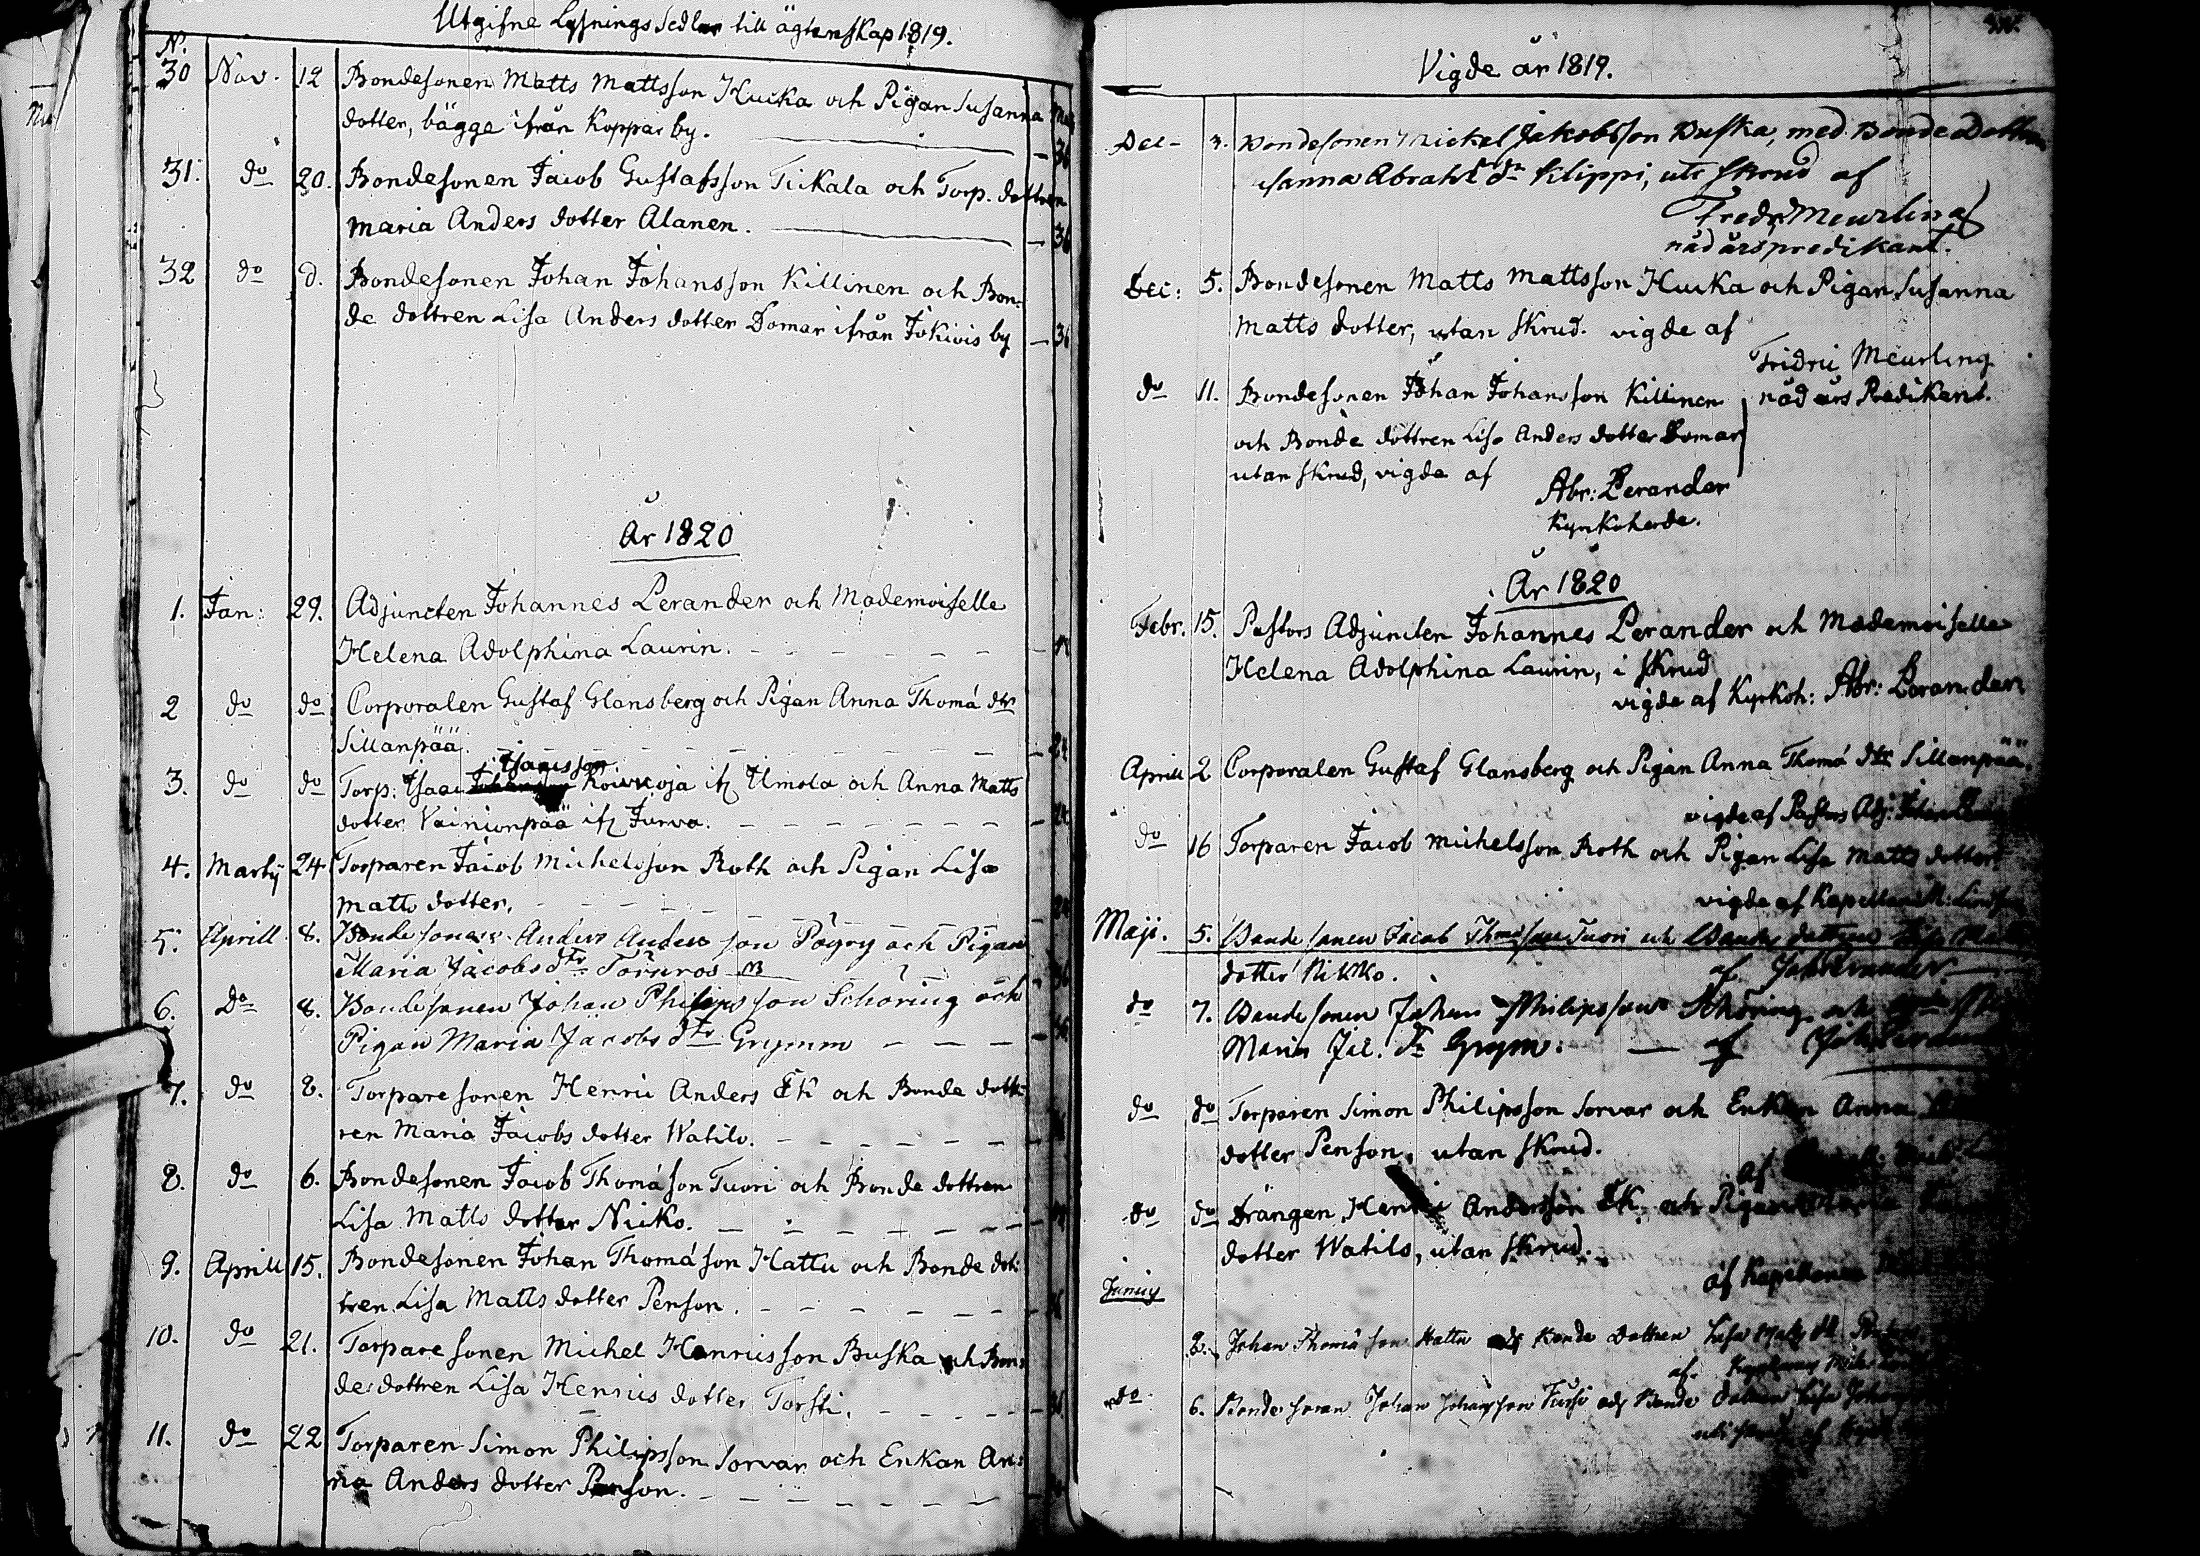 Utgifne Lysnings Sedlar till ägtenskap 1819.
N.
30 Nov. 12 Bondesonen Matts Mattsson Hucka och Pigan Susanna
dotter, bägge ifrån Koppar by. — 36
31. do 20. Bondesonen Jacob Gustafsson Tickala och Torp. dottren
Maria Anders dotter Alanen. — 36
32 do d. Bondesonen Johan Johansson Killinen och Bon-
de dottren Lisa Anders dotter Domar ifrån Jokivis by — 36
År 1820
1. Jan: 29. Adjuncten Johannes Perander och Mademoiselle
Helena Adolphina Laurin.
2 do do Corporalen Gustaf Glansberg och Pigan Anna Thomá dtr
Sillanpää. — 24
Isacsson
3. do do Torp: Isac Koivuoja if Ilmola och Anna Matts
dotter Vainionpää if Jurva. — 24
4. Martij 24 Torparen Jacob Michelsson Roth och Pigan Lisa
Matts dotter. — 24
5. Aprill 8. Bonde sonen Anders Anders son Pågry och Pigan
Maria Jacobs dtr Törnros — 36
6. Do 8. Bondesonen Johan Philips son Schöring och
Pigan Maria Jacobs dtr Grymm — 36
7. do 8. Torpare sonen Henric Anders Ek och Bonde dott-
ren Maria Jacobs dotter Watilo.
8. do 6. Bondesonen Jacob Thomáson Tuori och Bonde dottren
Lisa Matts dotter Nicko.
9. Aprill 15. Bondesonen Johan Thomáson Hattu och Bonde dot-
tren Lisa Matts dotter Penson.
10. do 21. Torpare sonen Michel Henricsson Buska och Bon-
de dottren Lisa Henrics dotter Torsti.
11. do 22 Torparen Simon Philipsson Sorvar och Enkan An-
na Anders dotter Penson.
Vigde år 1819.
Dec- 3. Bondesonen Mickel Jakobsson Buska, med Bonde Dottren
Sanna Abrah. dr Klippi, uti skrud af
Fredr Meurling
nådårspredikant.
Dec: 5. Bondesonen Matts Mattsson Hucka och Pigan Susanna
Matts dotter, utan skrud. vigde af
Fridric Meurling
nåd års Predikant.
do 11. Bondesonen Johan Johansson Killinen
och Bonde dottren Lisa Anders dotter Domar
utan skrud, vigde af
Abr: Perander
Kyrkoherde.
År 1820
Febr. 15. Pastors Adjuncten Johannes Perander och Mademoiselle
Helena Adolphina Laurin, i skrud
vigde af Kyrkoh: Abr: Perander
Aprill 2 Corporalen Gustaf Glansberg och Pigan Anna Thomá dtr Sillanpää.
vigde af Pastors Adj:
do 16 Torparen Jacob Michelsson Roth och Pigan Lisa Matts dotter
vigde af Kapellan M:
Maji. 5. Bonde sonen Jacob Thomásson Tuori och Bonde dottren Lisa
dotter Nikko. af Joh Perander
do 7. Bonde sonen Johan Philipsson Schöring och
Maria Jac. dr Grym. — af Joh Perander
do do Torparen Simon Philipsson Sorvar och Enkan Anna
dotter Penson, utan skrud.
af
do do Drängen Henric Andersson Ek och Pigan Maria
dotter Watilo, utan skrud.
af Kapellanen
Junij
2. Johan Thomá son Hattu och Bonde Dottren Lisa Matts dtr
af
do 6. Bonde sonen Johan Johansson och Bonde Dottren Lisa